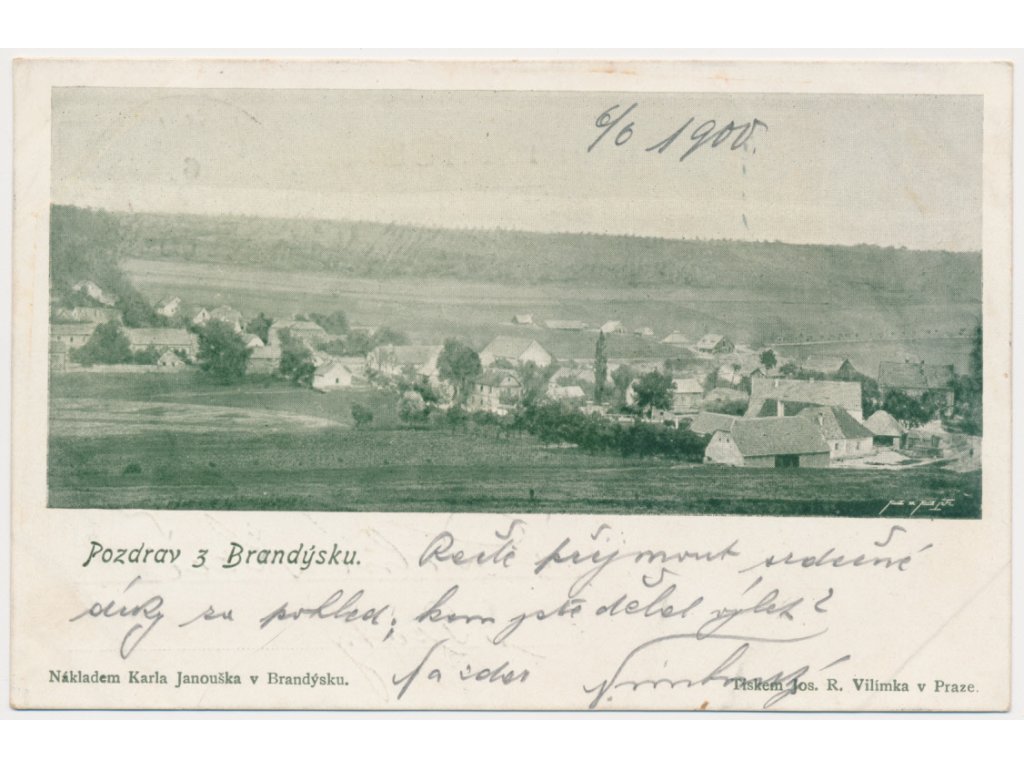 6/6 1900.
Pozdrav z Brandýsku.
Račtě přijmout srdečné
díky za pohled; kam jste dělal výlet?
Nazdar
Nákladem Karla Janouška v Brandýsku.
Tiskem Jos. R. Vilímka v Praze.